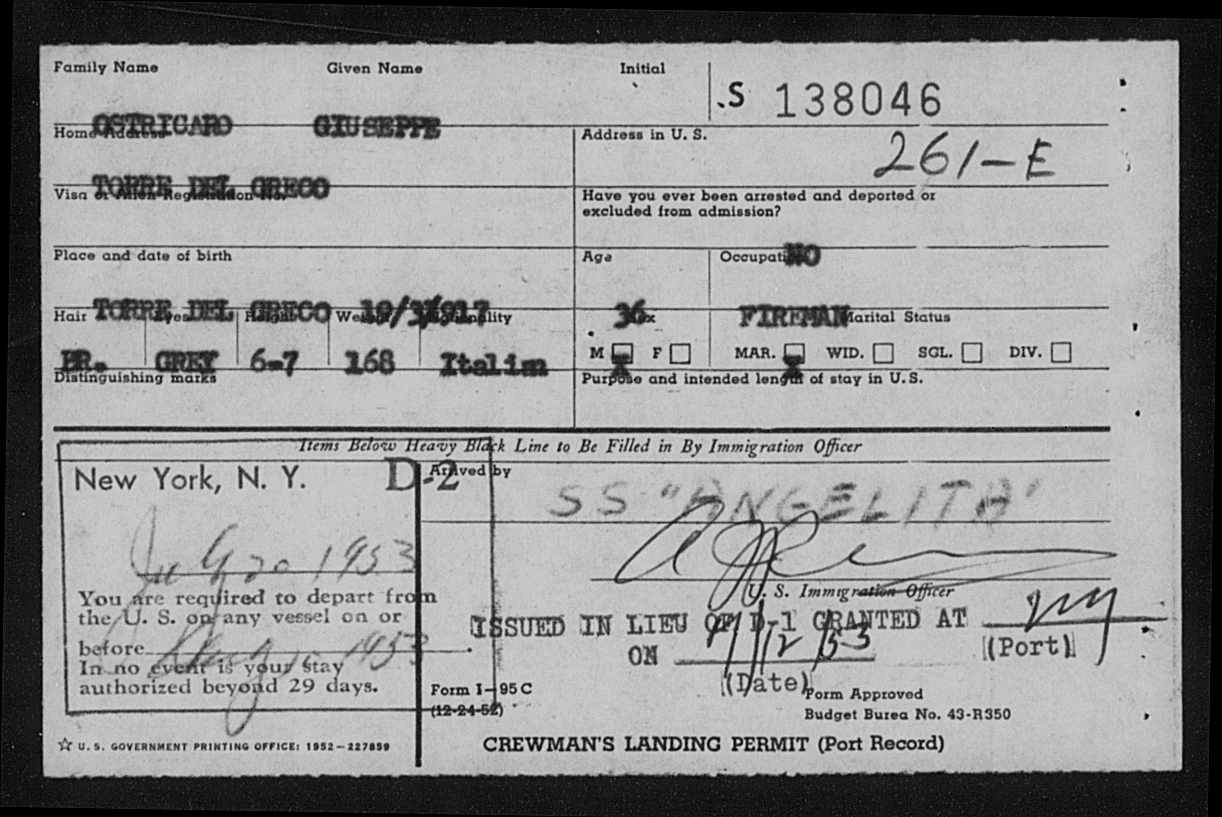 Family Name Given Name Initial
.S 138046
OSTRICARO GIUSEPPE
Home Address Address in U. S.
261-E
TORRE DEL GRECO
Visa or Alien Registration No. Have you ever been arrested and deported or
excluded from admission?
NO
Place and date of birth Age Occupation
TORRE DEL GRECO 36 FIREMAN
Hair Eyes Height Weight Nationality Sex Marital Status
BR. GREY 6-7 168 Italian M X F MAR. X WID. SGL. DIV.
Distinguishing marks Purpose and intended length of stay in U.S.
Items Below Heavy Black Line to Be Filled in By Immigration Officer
New York, N. Y. D-2 Arrived by
SS "ANGELITA"
July 20 1953
U. S. Immigration Officer
You are required to depart from
the U. S. on any vessel on or
before 1953
In no event is your stay
authorized beyond 29 days.
ISSUED IN LIEU OF D-1 GRANTED AT NY
(Port)
ON /12/53
(Date)
Form I-95C
(12-24-52)
Form Approved
Budget Bureau No. 43-R350
☆ U. S. GOVERNMENT PRINTING OFFICE: 1952-227859
CREWMAN'S LANDING PERMIT (Port Record)